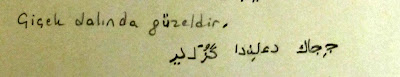 Çiçek dalında güzeldir.
ججاك دعلندا گُزّلدير